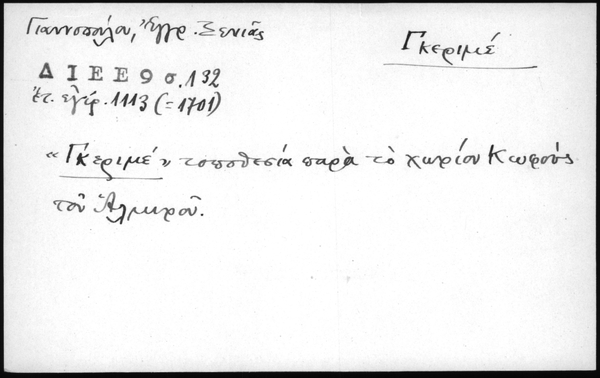 Γιαννοπούλου, Ἔγγρ. Ξενιᾶς
Γκεριμέ
ΔΙΕΕ 9 σ. 132
ἔτ. ἐγίρ. 1113 (=1701)
«Γκεριμέ» τοποθεσία παρὰ τὸ χωρίον Κωφοὺς
τοῦ Ἁλμυροῦ.